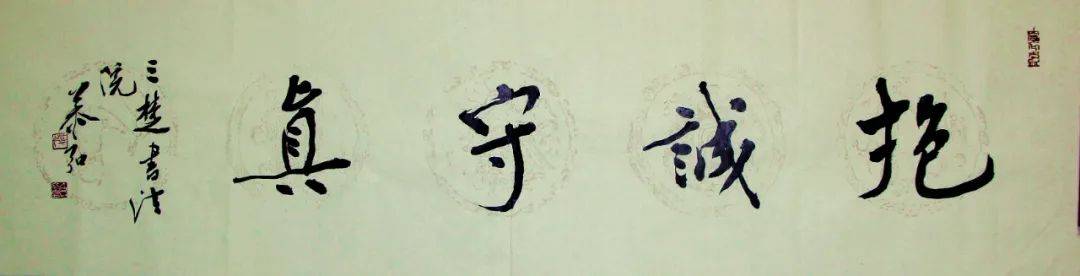 抱誠守真
三楚書法
院
慕弘